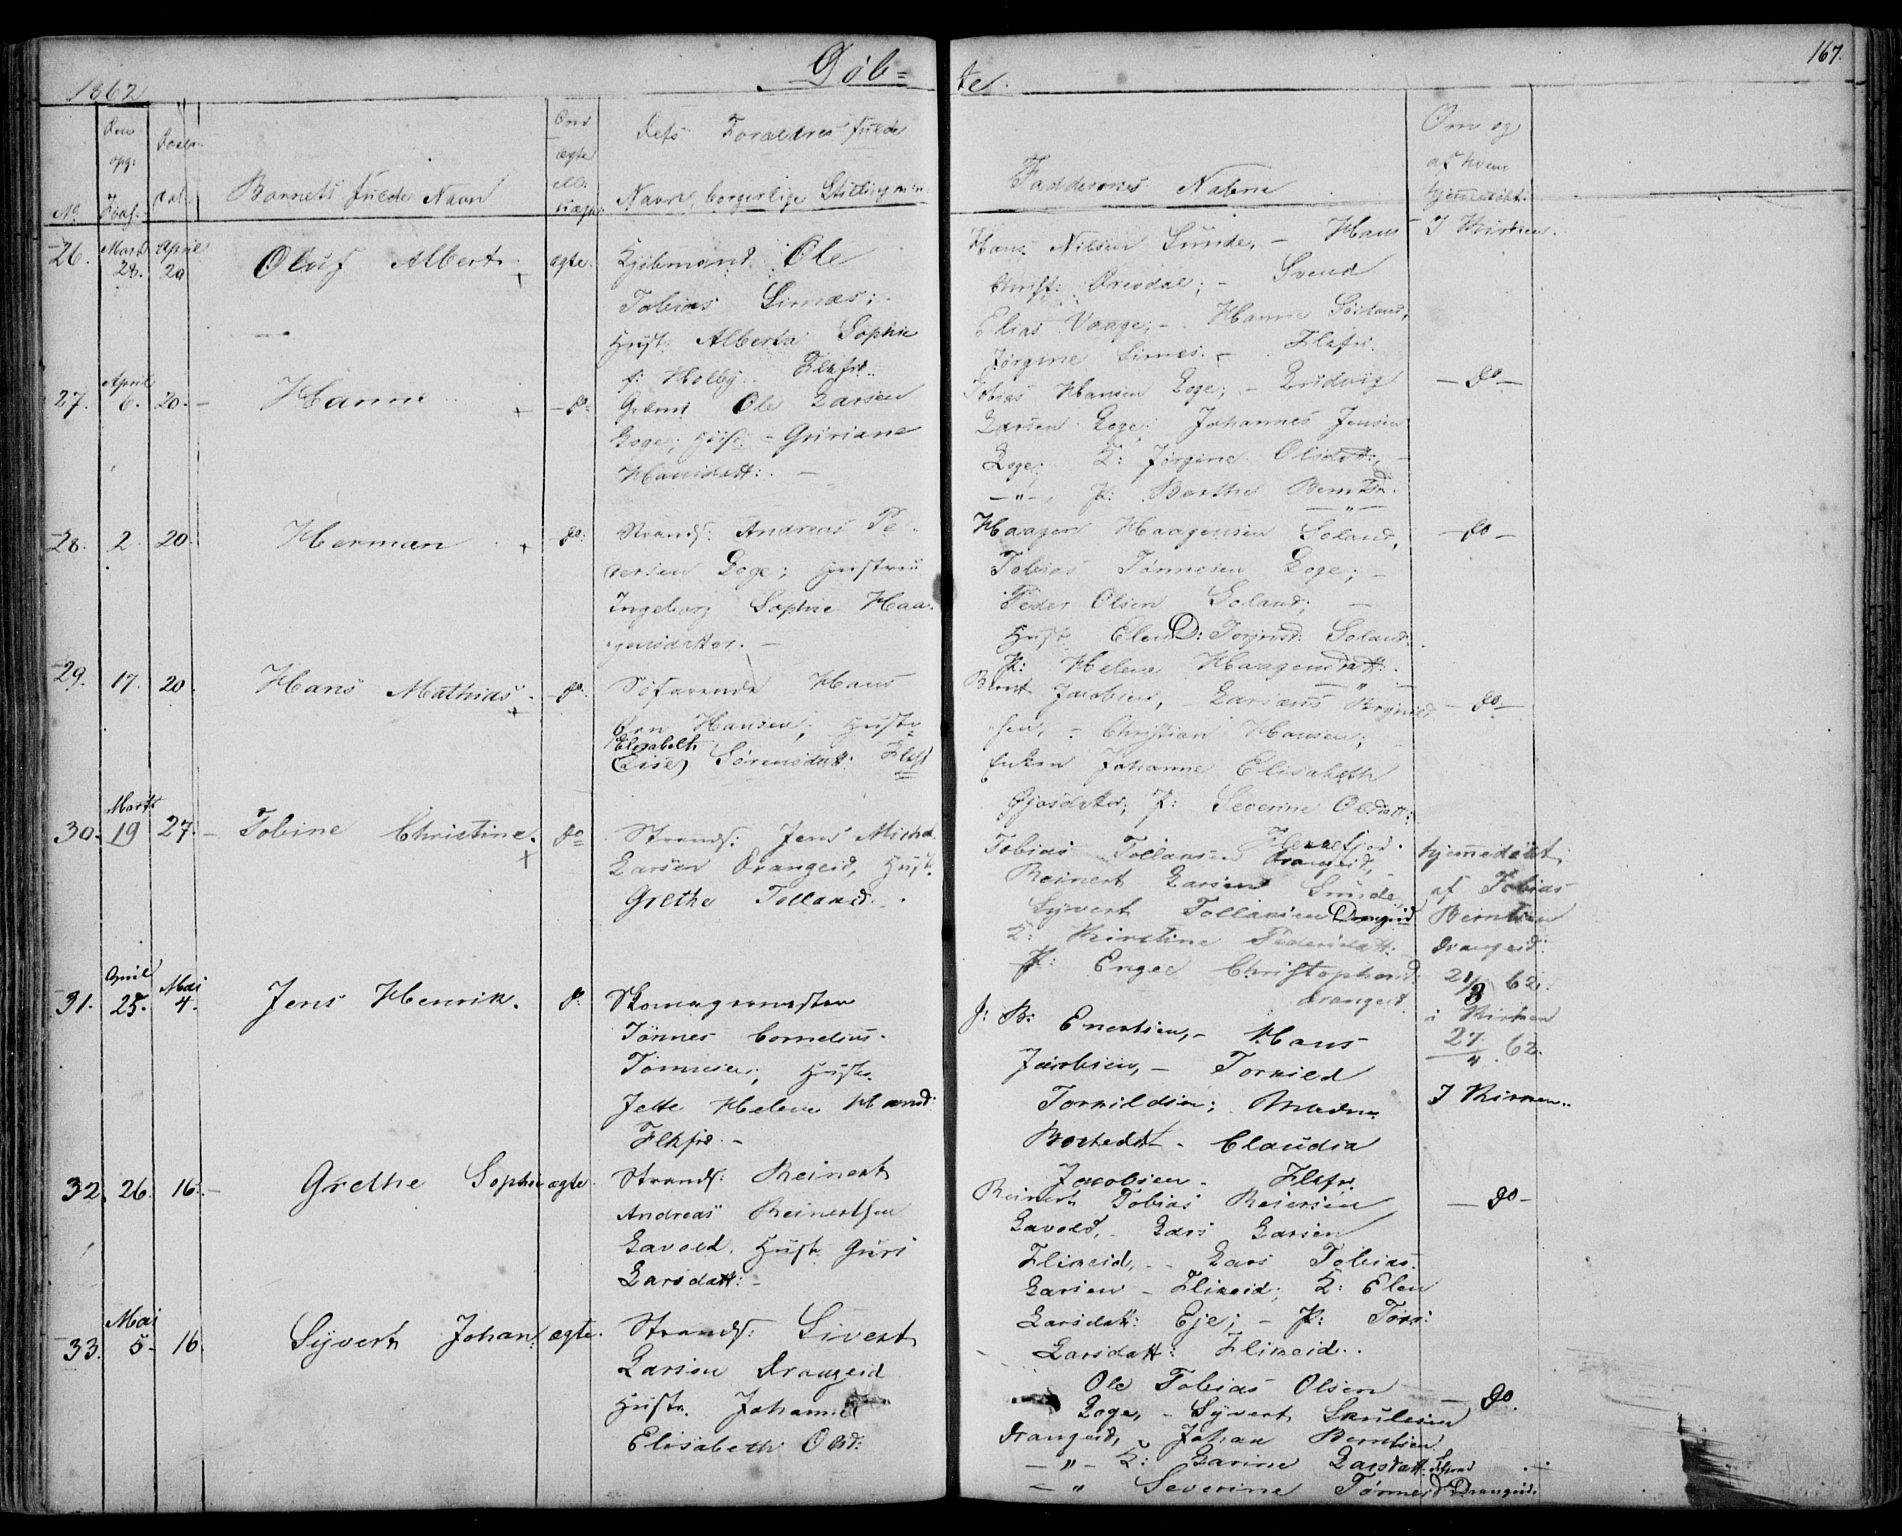 1862
Døb=
te.
167.
No
Den opg: Daaf.
Barnets fulde Navn
Om ægte ell: uægte
Dets Forældres fulde
Navne, borgerlige Stilling
Faddernes Navne
Om og
af hvem
hjemmedøbt.
26. Marts 28. April 20 Oluf Albert ægte.
Kjøbmand Ole
Tobias Sirnes;
Hust: Alberta Sophie
f: Holby. Flkfrd.
Hans Nilsen Sunde, - Hans
Christ: Øresdal; - Svend
Elias Vaage; - Hanne Søiland,
Jørgine Sirnes. - Flkfr.
I Kirken.
27. April 6. 20. Hanne - do -
Ole Larsen
Loge; Hust: - Guriane
Hansdatt:. -
Tobias Hansen Loge; - Ludvig
Larsen Loge; Johannes Jensen
Loge; K: Jørgine Olsdatt:, -
- " - P: Berthe Berntsd.
- " -
- do -
28. 2. 20. Herman do:
Strands: Andreas Pe-
dersen Loge; Hustru
Ingeborg Sophie Haa-
gensdatter. -
Haagen Haagensen Soland,
Tobias Tønnesen Loge; -
Peder Olsen Soland; -
Hust: Elen D: Torjusd: Soland.
P: Helene Haagensdatt:
- do -
29. 17. 20. Hans Mathias. do:
Søfarende Hans
Hansen; Hustr:
Elisabeth
(Lise) Sørensdatt: Flkf
Bernt Jacobsen, - Larsens
sen, - Christian Hansen;
Enken Johanne Elisabeth
P: Severine Olsdatt:
Flekkefjord.
- do -
30. Marts 19 27. - Tobine Christine. do
Strands: Jens Michal
Larsen Drangeid, Hust.
Grethe Tollaksd. -
Tobias Tollaksen Drangeid,
Reinert Larsen Sunde,
Syvert Tollaksen Drangeid
K: Kirstine Pedersdatt:
P: Engel Christophersd.
Drangeid.
hjemmedøbt
af Tobias
Berntsen
Drangeid.
21/3 62.
i Kirken
27/4 62.
31. April 25. Mai 4. Jens Henrik. d:
Skomagermester
Tønnes Cornelius
Tønnesen; Hustr.
Jette Helene Hansd:
Flkfrd. -
J: B: Enertsen, - Hans
Jacobsen, - Torkild
Torkildsen; Madm.
Claudia
Jacobsen. Flkfr.
I Kirken.
32. 26. 16. - Grethe Sophie ægte.
Strands: Reinert
Andreas Reinertsen
Lavold. Hust: Guri
Larsdatt: -
Reinert Tobias Reiersen
Lavold. - Lars Larsen
Flikeid, - Lars Tobias
Larsen - Flikeid; K: Elen
Larsdatt: Eje; - P:
Larsdatt: Flikeid.
- do -
33. Mai 5. 16. Syvert Johan ægte.
Strands: Sivert
Larsen Drangeid
Hustr. Johanne
Elisabeth Olsd:
Ole Tobias Olsen
Loge, - Syvert Skulesen
Drangeid, Johan Berntsen
- " - K: Larine Larsdatt:
- " Severine Tønnesd Drangeid.
- do.